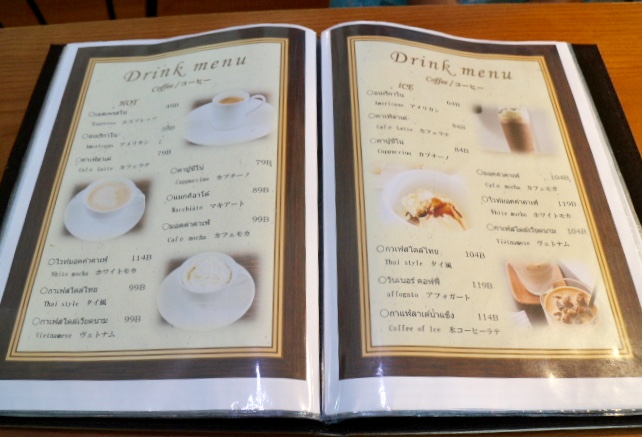 Drink menu
Coffee / コーヒー
HOT
○เอสเพรสโซ 49B
Espresso エスプレッソ
○อเมริกาโน
Americano アメリカン
○คาเฟ่ลาเต้ 79B
Cafe latte カフェラテ
○คาปูชิโน่ 79B
Cappuccino カプチーノ
○แมกคิอาโต้ 89B
Macchiato マキアート
○มอคค่าคาเฟ่ 99B
Cafe mocha カフェモカ
○ไวท์มอคค่าคาเฟ่ 114B
White mocha ホワイトモカ
○กาแฟสไตล์ไทย 99B
Thai style タイ風
○กาแฟสไตล์เวียดนาม 99B
Vietnamese ヴェトナム
Drink menu
Coffee / コーヒー
ICE
○อเมริกาโน 64B
Americano アメリカン
○คาเฟ่ลาเต้ 84B
Cafe latte カフェラテ
○คาปูชิโน่ 84B
Cappuccino カプチーノ
○มอคค่าคาเฟ่ 104B
Cafe mocha カフェモカ
○ไวท์มอคค่าคาเฟ่ 119B
White mocha ホワイトモカ
○กาแฟสไตล์เวียดนาม 104B
Vietnamese ヴェトナム
○กาแฟสไตล์ไทย 104B
Thai style タイ風
○วินเนอร์ คอฟฟี่ 119B
affogato アフォガート
○กาแฟลาเต้น้ำแข็ง 114B
Coffee of Ice 氷コーヒーラテ